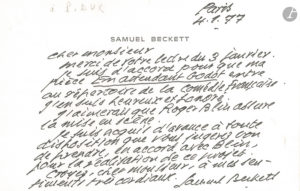 à P. DUX
Paris
4.1.77
SAMUEL BECKETT
cher monsieur
merci de votre lettre du 3 janvier.
Je suis d'accord pour que ma
pièce En attendant Godot entre
au répertoire de la comédie française.
J'en suis heureux et honoré.
J'aimerais que Roger Blin assure
la mise en scène.
Je suis acquis d'avance à toute
disposition que vous jugerez bon
de prendre, en accord avec Blin,
pour la réalisation de ce projet.
Croyez, cher monsieur, à mes sen-
timents très cordiaux.
Samuel Beckett